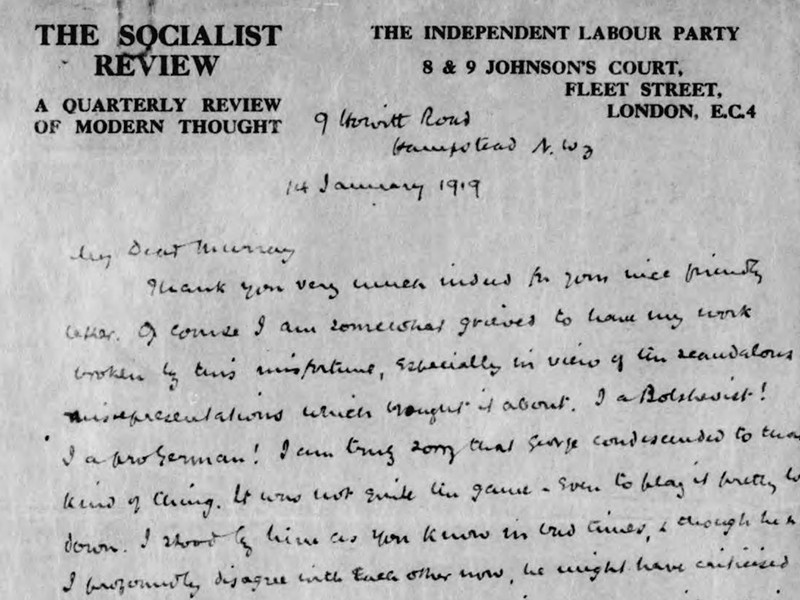 THE SOCIALIST
REVIEW
A QUARTERLY REVIEW
OF MODERN THOUGHT
THE INDEPENDENT LABOUR PARTY
8 & 9 JOHNSON'S COURT,
FLEET STREET,
LONDON, E.C.4
9 Howitt Road
Hampstead N.W3
14 January 1919
My Dear Murray
Thank you very much indeed for your nice friendly
letter. Of course I am somewhat grieved to have my work
broken by this misfortune, especially in view of the scandalous
misrepresentations which brought it about. I a Bolshevist!
I a pro German! I am truly sorry that George condescended to that
kind of thing. It was not quite the game - Even to play it pretty
down. I stood by him as you know in bad times, & though he &
I profoundly disagree with each other now, he might have criticised